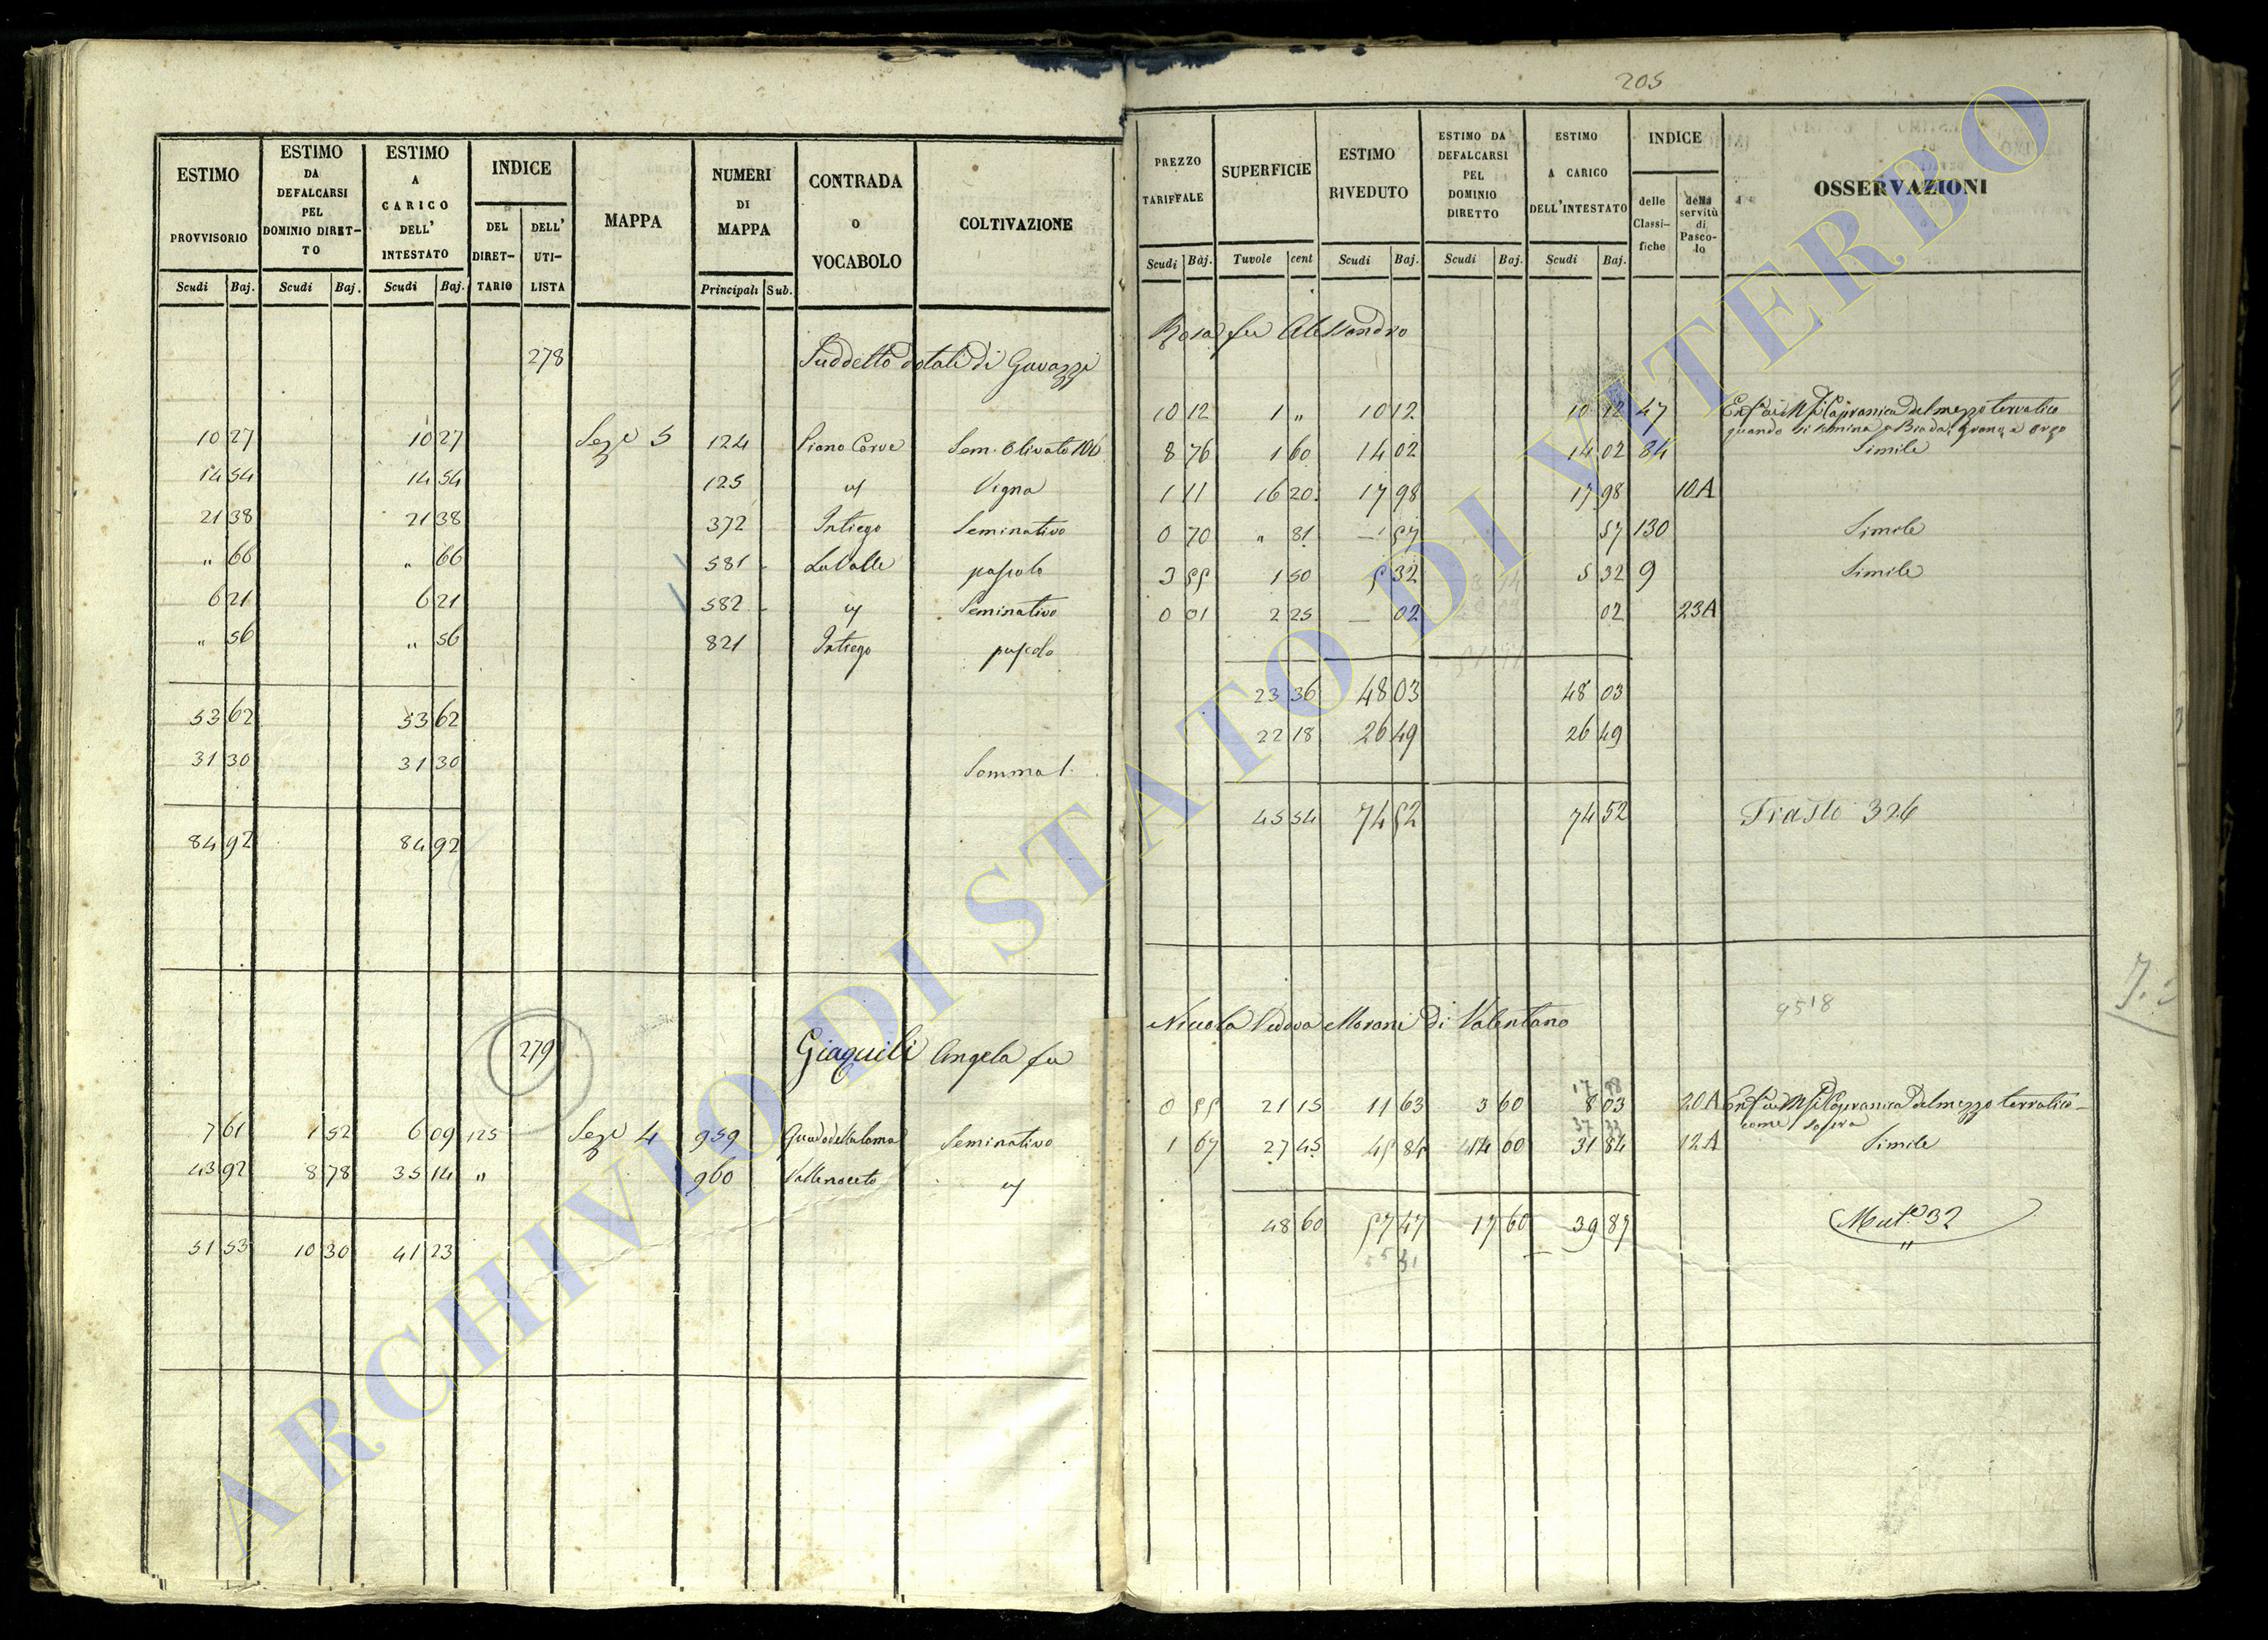 205
ESTIMO PROVVISORIO | ESTIMO DA DEFALCARSI PEL DOMINIO DIRETTO | ESTIMO A CARICO DELL' INTESTATO | INDICE | MAPPA | NUMERI DI MAPPA | CONTRADA O VOCABOLO | COLTIVAZIONE | PREZZO TARIFFALE | SUPERFICIE | ESTIMO RIVEDUTO | ESTIMO DA DEFALCARSI PEL DOMINIO DIRETTO | ESTIMO A CARICO DELL' INTESTATO | INDICE | OSSERVAZIONI
DEL DIRETTARIO | DELL' UTILISTA | delle Classifiche | della servitù di Pascolo
Scudi | Baj. | Scudi | Baj. | Scudi | Baj. | Principali | Sub. | Scudi | Baj. | Tavole | cent | Scudi | Baj. | Scudi | Baj. | Scudi | Baj.
278 Suddetto dotali di Gavazzi Rosa fu Alessandro
10 27 | 10 27 | Seze 5 | 124 | Piano Corve | Sem. Olivato 106 | 10 12 | 1 " | 10 12 | 10 12 | 47 | Capranica del mezzo terratico
quando si semina Biada, Grano, e orzo
14 54 | 14 54 | 125 | " | Vigna | 8 76 | 1 60 | 14 02 | 14 02 | 84 | Simile
21 38 | 21 38 | 372 | Intiego | Seminativo | 1 11 | 16 20 | 17 98 | 17 98 | 10A
" 66 | " 66 | 581 | La Valle | pascolo | 0 70 | " 81 | — 57 | 57 | 130 | Simile
6 21 | 6 21 | 582 | " | Seminativo | 3 55 | 1 50 | 5 32 | 5 32 | 9 | Simile
" 56 | " 56 | 821 | Intiego | pascolo | 0 01 | 2 25 | — 02 | 02 | 23A
53 62 | 53 62 | 23 36 | 48 03 | 48 03
31 30 | 31 30 | Somma 1. | 22 18 | 26 49 | 26 49
84 92 | 84 92 | 45 54 | 74 52 | 74 52 | Trasto 326
9518
279 Giaquili Angela fu Niccola Vedova Morani di Valentano
17 98
7 61 | 1 52 | 6 09 | 125 | Seze 4 | 959 | Guado della lama | Seminativo | 0 55 | 21 15 | 11 63 | 3 60 | 8 03 | 20A | Capranica del mezzo terratico
come sopra
43 92 | 8 78 | 35 14 | " | 960 | Vallenoceto | " | 1 67 | 27 45 | 45 84 | 14 00 | 31 84 | 12A | Simile
51 53 | 10 30 | 41 23 | 48 60 | 57 47 | 17 60 | 39 87 | Mut.e 32
ARCHIVIO DI STATO DI VITERBO